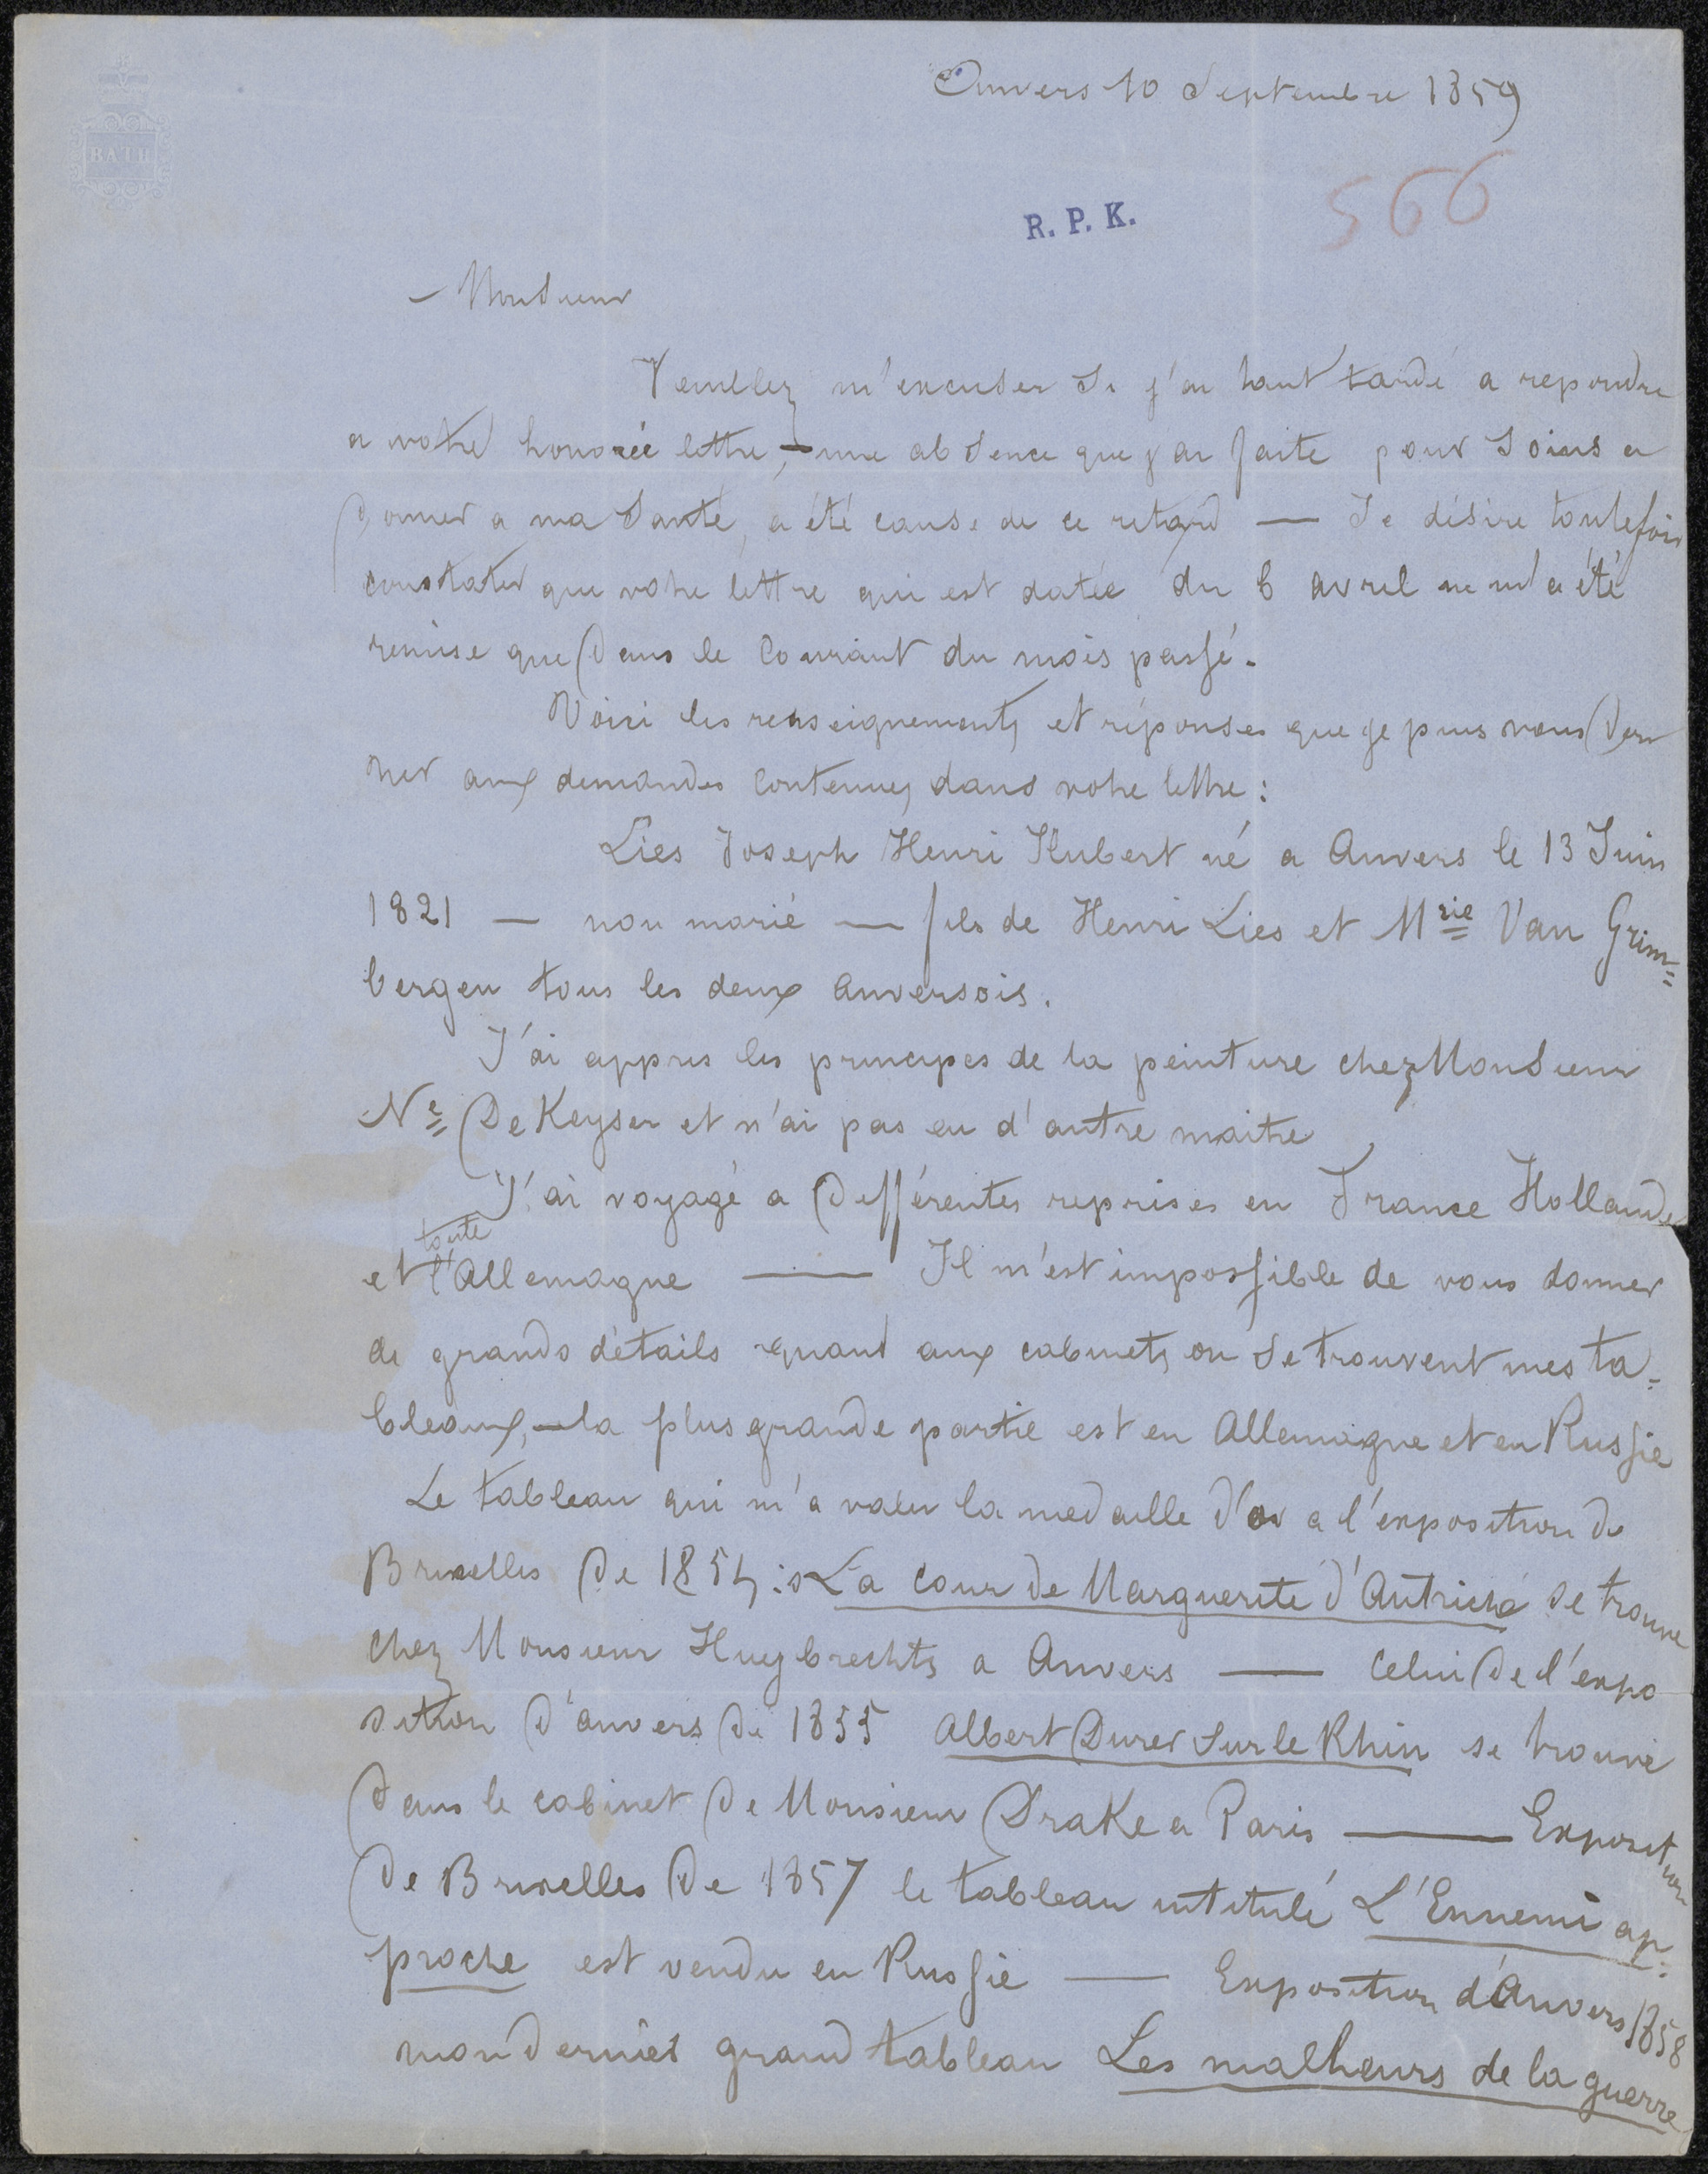 BATH
Anvers 10 Septembre 1859
R. P. K.
566
Monsieur
Veuillez m'excuser Si j'ai tant tardé a repondre
a votre honorée lettre, — une absence que j'ai faite pour soins a
donner a ma Santé, a été cause de ce retard — Je désire toutefois
constater que votre lettre qui est datée du 6 avril ne m'a été
remise que dans le Courant du mois passé.
Voici les renseignements et réponses que je puis vous don
ner aux demandes Contenues dans votre lettre :
Lies Joseph Henri Hubert né a Anvers le 13 Juin
1821 — non marié — fils de Henri Lies et Mrie Van Grim=
bergen tous les deux anversois.
J'ai appris les principes de la peinture chez Monsieur
Ne De Keyser et n'ai pas eu d'autre maitre
J'ai voyagé a différentes reprises en France Hollande
toute
et l'Allemagne — Il m'est impossible de vous donner
de grands détails quant aux cabinets ou Se trouvent mes ta=
bleaux, — la plus grande partie est en Allemagne et en Russie
Le tableau qui m'a valu la medaille d'or a l'exposition de
Bruxelles de 1854 : La cour de Marguerite d'Autriche se trouve
chez Monsieur Huybrechts a Anvers — Celui de l'expo
sition d'anvers de 1855 Albert Durer Sur le Rhin se trouve
dans le cabinet de Monsieur Drake a Paris — Exposition
de Bruxelles de 1857 le tableau intitulé L'Ennemi ap=
proche est vendu en Russie — Exposition d'Anvers 1858
mon dernier grand tableau Les malheurs de la guerre